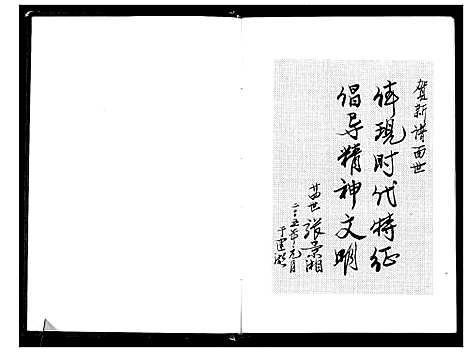 贺新谱面世
体现时代特征
倡导精神文明
廿世 张景湘
二〇〇五年元月
于